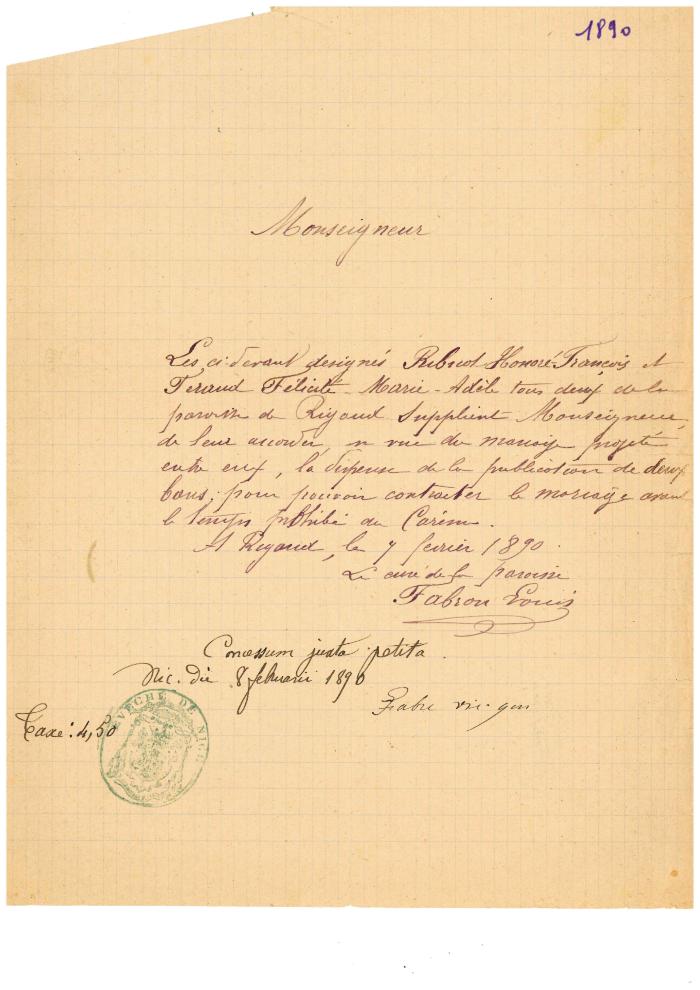 1890
Monseigneur
Les ci-devant designés Ribuot Honoré-François et
Feraud Félicité-Marie-Adèle tous deux de la
paroisse de Rigaud Supplient Monseigneur,
de leur accorder, en vue du mariage projeté
entre eux, la dispense de la publication de deux
bans, pour pouvoir contracter le mariage avant
le temps prohibé du Carême.
A Rigaud, le 7 février 1890.
Le curé de la paroisse
Fabron Louis
Concessum juxta petita.
Nic. die 8 februarii 1890
Fabre vic. gen
Taxe: 4,50
EVÊCHÉ DE NICE